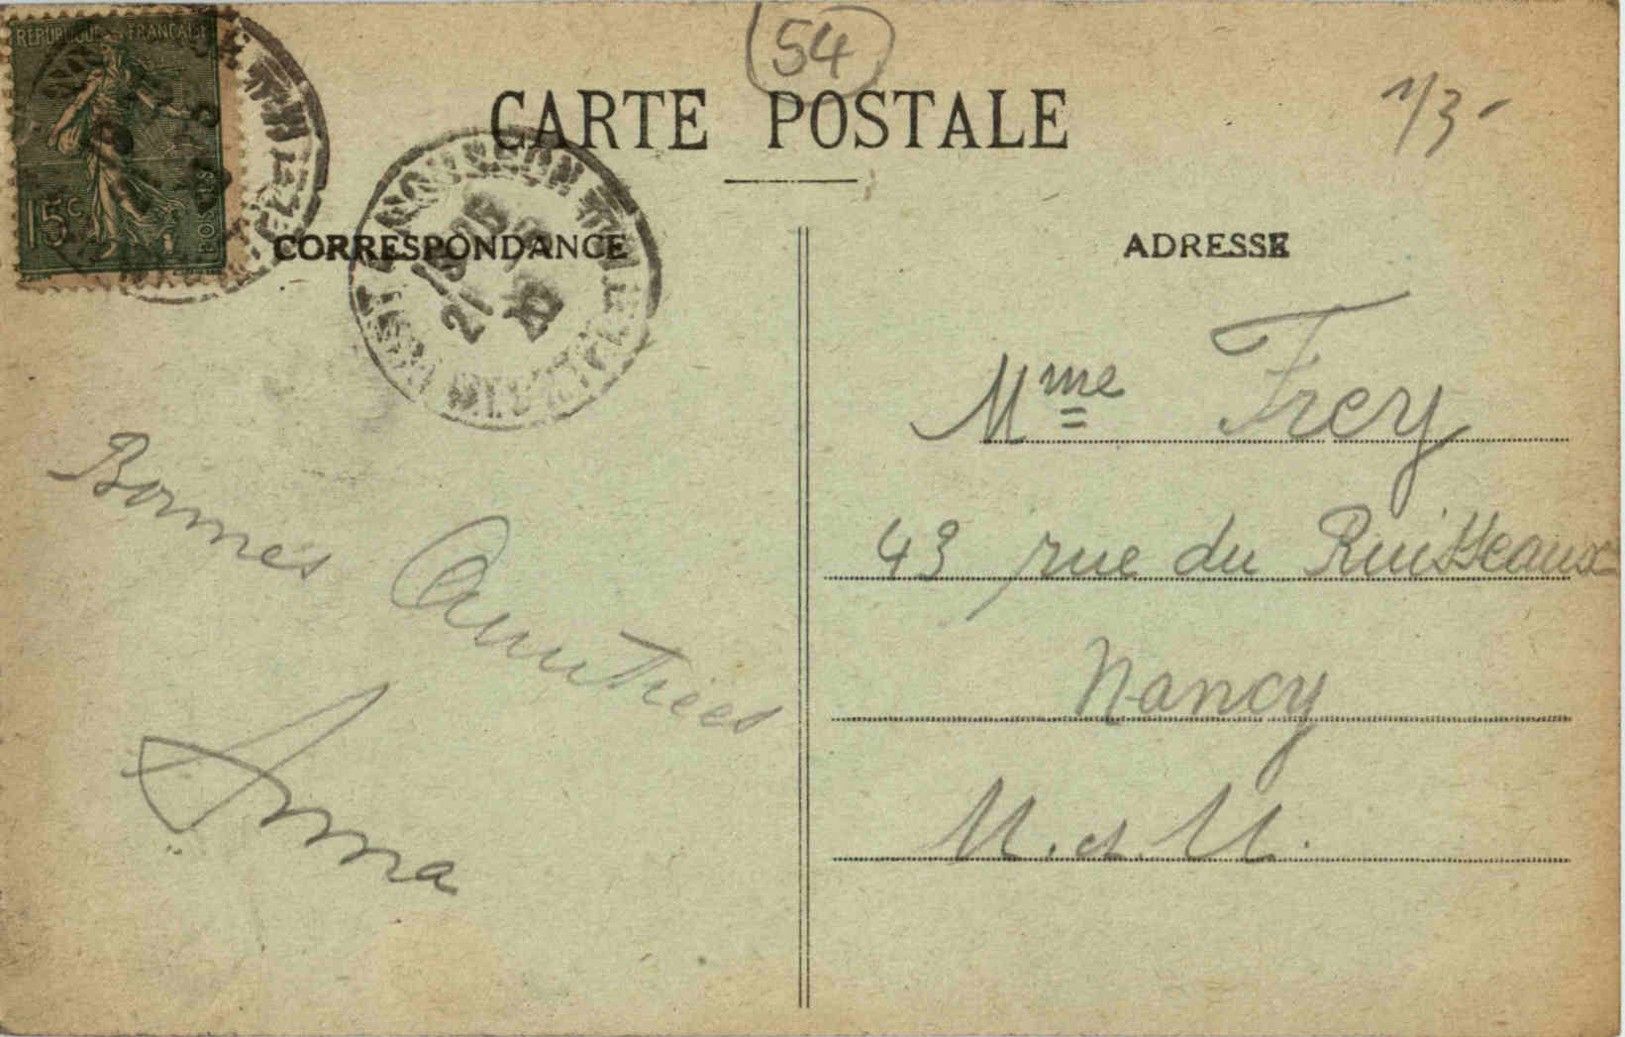 REPUBLIQUE FRANCAISE
15c
POSTES
54
CARTE POSTALE
1/3-
CORRESPONDANCE
ADRESSE
Bonnes Amitiées
Anna
Mme Frey
43 rue du Ruisseaux
Nancy
M. et M.